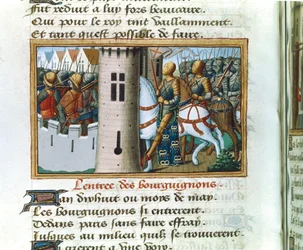 fut reduit a luy fors beaucaire.
Qui pour le roy tint vaillamment.
Et tant quest possible de faire.
Lentree des bourguignons.
Lan dixhuit ou mors de may.
Les bourguignons si entrerent.
Dedans paris sans faire effray
Jusques au milieu quilz se trouuerent.